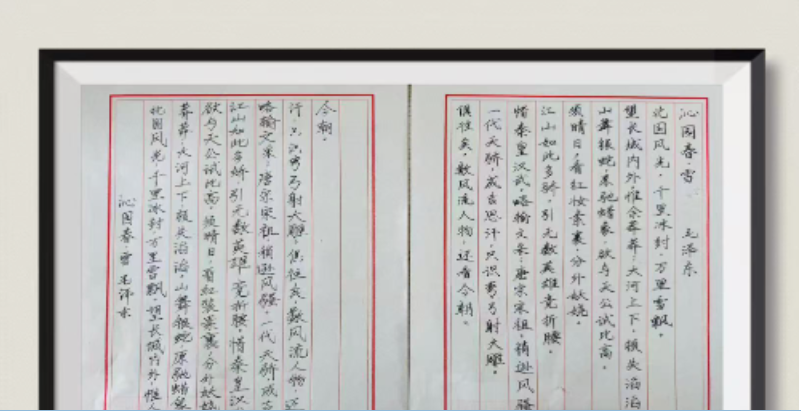 沁园春·雪 毛泽东
北国风光，千里冰封，万里雪飘。
望长城内外，惟余莽莽；大河上下，顿失滔滔
山舞银蛇，原驰蜡象，欲与天公试比高。
须晴日，看红妆素裹，分外妖娆。
江山如此多娇，引无数英雄竞折腰。
惜秦皇汉武，略输文采；唐宗宋祖，稍逊风骚
一代天骄，成吉思汗，只识弯弓射大雕。
俱往矣，数风流人物，还看今朝。
沁园春·雪 毛泽东
北国风光，千里冰封，万里雪飘，望长城内外，惟
莽莽，大河上下，顿失滔滔，山舞银蛇，原驰蜡象
欲与天公试比高，须晴日，看红装素裹，分外妖娆
江山如此多娇，引无数英雄竞折腰，惜秦皇汉
略输文采，唐宗宋祖，稍逊风骚，一代天骄，成
汗，只识弯弓射大雕，俱往矣，数风流人物，还
今朝。